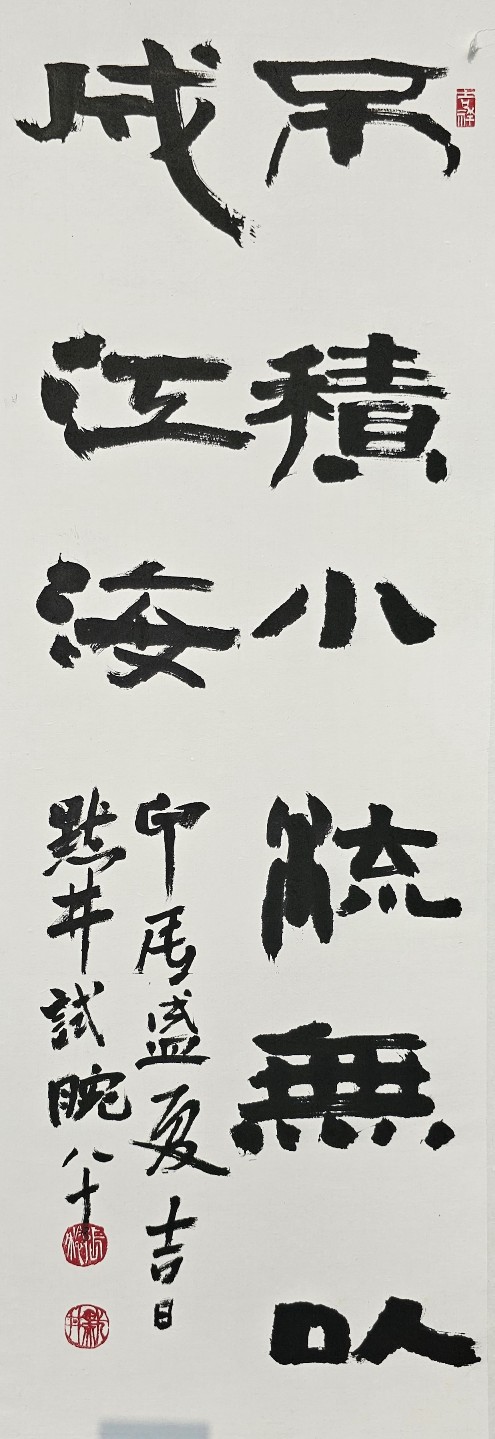 吉祥
不積小流無以
成江海
甲辰盛夏吉日
默井試腕八十
默井